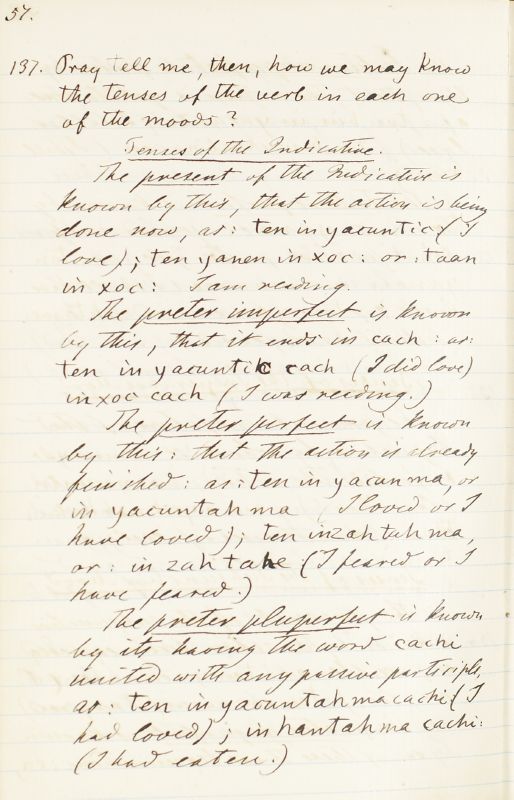 57.
137. Pray tell me, then, how we may know
the tenses of the verb in each one
of the moods?
Tenses of the Indicative.
The present of the Indicative is
known by this, that the action is being
done now, as: ten in yacuntic (I
love); ten yanen in xoc: or: taan
in xoc: I am reading.
The preter imperfect is known
by this, that it ends in cach: as:
ten in yacuntic cach (I did love)
in xoc cach (I was reading.)
The preter perfect is known
by this: that the action is already
finished: as: ten in yacunma, or
in yacuntahma (I loved or I
have loved); ten inzahtahma,
or: in zahtahe (I feared or I
have feared.)
The preter pluperfect is known
by its having the word cachi
united with any passive participle,
as: ten in yacuntahmacachi (I
had loved); in hantahma cachi:
(I had eaten.)